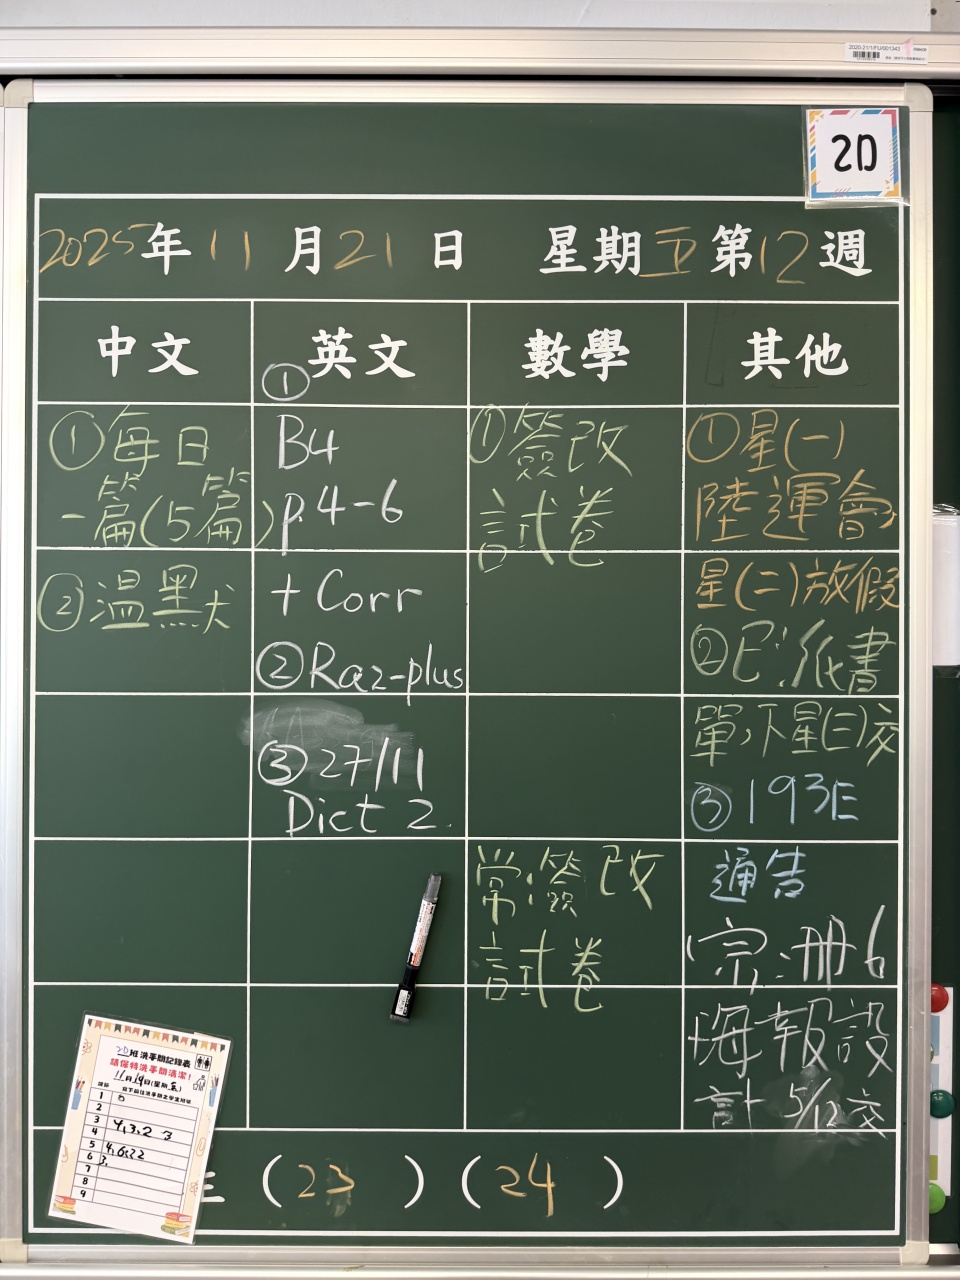 2020-21/1/FU/001343
2D
2025年11月21日 星期五第12週
中文 英文 數學 其他
①每日
一篇(5篇)
②温默
①
B4
p.4-6
+ Corr
②Raz-plus
③27/11
Dict 2.
①簽改
試卷
常:簽改
試卷
①星(一)
陸運會,
星(二)放假
單,下星(三)交
③193E
通告
宗:冊6
海報設
計 5/12交
(23) (24)
2D班洗手間記錄表
請保持洗手間清潔!
11月19日(星期
1
2
3
4
5
6
7
8
9
4,3,2 3